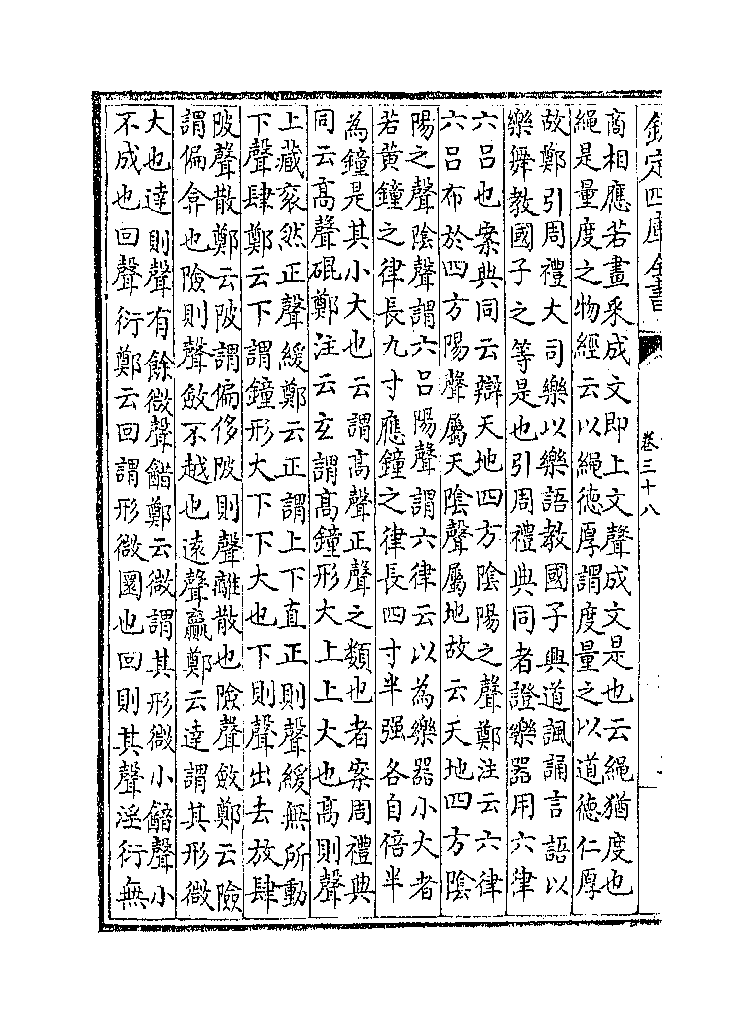 欽定四庫全書
卷三十八
商相應若畫采成文即上文聲成文是也云繩猶度也
繩是量度之物經云以繩德厚謂度量之以道德仁厚
故鄭引周禮大司樂以樂語教國子興道諷誦言語以
樂舞教國子之等是也引周禮典同者證樂器用六律
六呂也案典同云辯天地四方陰陽之聲鄭注云六律
六呂布於四方陽聲屬天陰聲屬地故云天地四方陰
陽之聲陰聲謂六呂陽聲謂六律云以為樂器小大者
若黄鐘之律長九寸應鐘之律長四寸半强各自倍半
為鐘是其小大也云謂高聲正聲之類也者案周禮典
同云高聲䃂鄭注云玄謂高鐘形大上上大也高則聲
上藏衮然正聲緩鄭云正謂上下直正則聲緩無所動
下聲肆鄭云下謂鐘形大下下大也下則聲出去放肆
陂聲散鄭云陂謂偏侈陂則聲離散也險聲斂鄭云險
謂偏弇也險則聲斂不越也逺聲贏鄭云逹謂其形微
大也逹則聲有餘微聲韽鄭云微謂其形微小韽聲小
不成也回聲衍鄭云回謂形微圜也回則其聲淫衍無